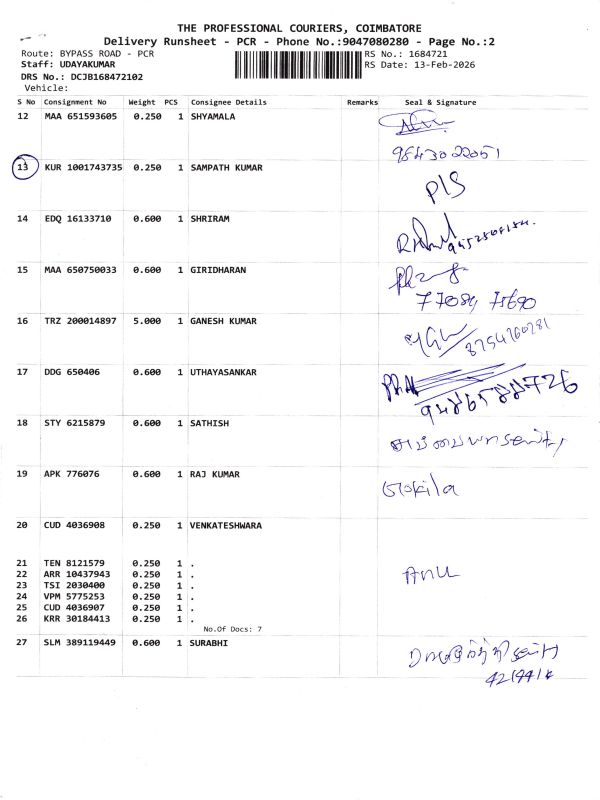 THE PROFESSIONAL COURIERS, COIMBATORE
Delivery Runsheet - PCR - Phone No.:9047080280 - Page No.:2
Route: BYPASS ROAD - PCR RS No.: 1684721
Staff: UDAYAKUMAR RS Date: 13-Feb-2026
DRS No.: DCJB168472102
Vehicle:
S No Consignment No Weight PCS Consignee Details Remarks Seal & Signature
12 MAA 651593605 0.250 1 SHYAMALA
9843022051
13 KUR 1001743735 0.250 1 SAMPATH KUMAR
P/S
14 EDQ 16133710 0.600 1 SHRIRAM
15 MAA 650750033 0.600 1 GIRIDHARAN
16 TRZ 200014897 5.000 1 GANESH KUMAR
8754260281
17 DDG 650406 0.600 1 UTHAYASANKAR
9486588726
18 STY 6215879 0.600 1 SATHISH
19 APK 776076 0.600 1 RAJ KUMAR
20 CUD 4036908 0.250 1 VENKATESHWARA
21 TEN 8121579 0.250 1 .
22 ARR 10437943 0.250 1 .
Anu
23 TSI 2030400 0.250 1 .
24 VPM 5775253 0.250 1 .
25 CUD 4036907 0.250 1 .
26 KRR 30184413 0.250 1 .
No.Of Docs: 7
27 SLM 389119449 0.600 1 SURABHI